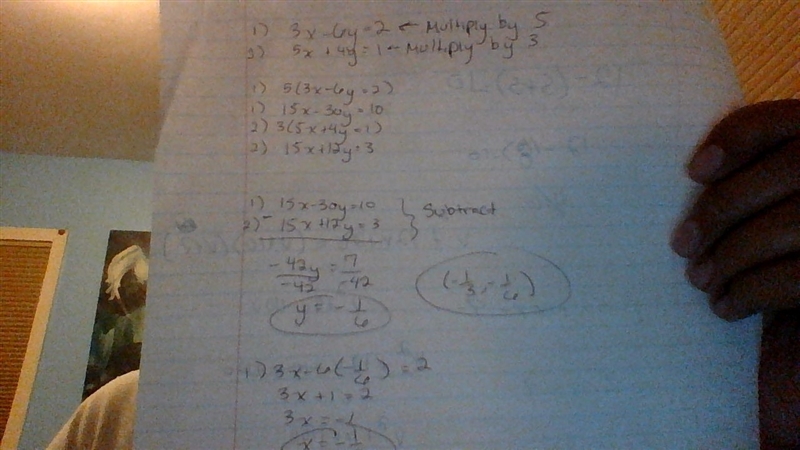 1) 3x-6y=2 ← Multiply by 5
2) 5x+4y=1 ← Multiply by 3
1) 5(3x-6y=2)
1) 15x-30y=10
2) 3(5x+4y=1)
2) 15x+12y=3
1) 15x-30y=10 } Subtract
2) - 15x+12y=3
-42y/-42 = 7/-42
y = -1/6
(-1/3, -1/6)
1) 3x-6(-1/6) = 2
3x+1=2
3x=-1
x=-1